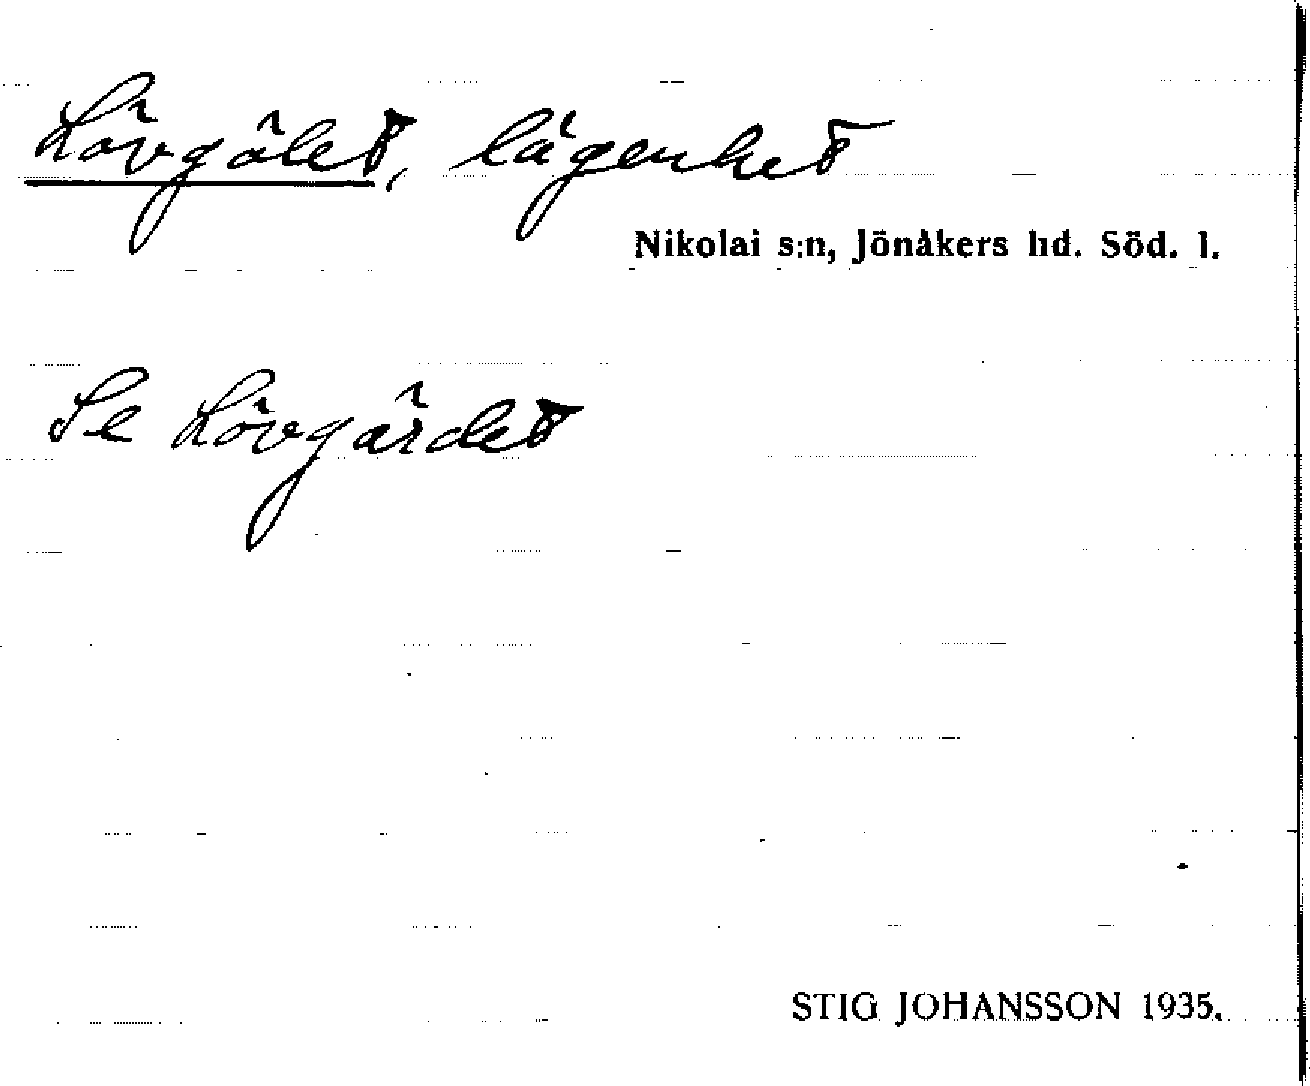 Lövgölet, lägenhet
Nikolai s:n, Jönåkers hd. Söd. l.
Se Lövgärdet
STIG JOHANSSON 1935.